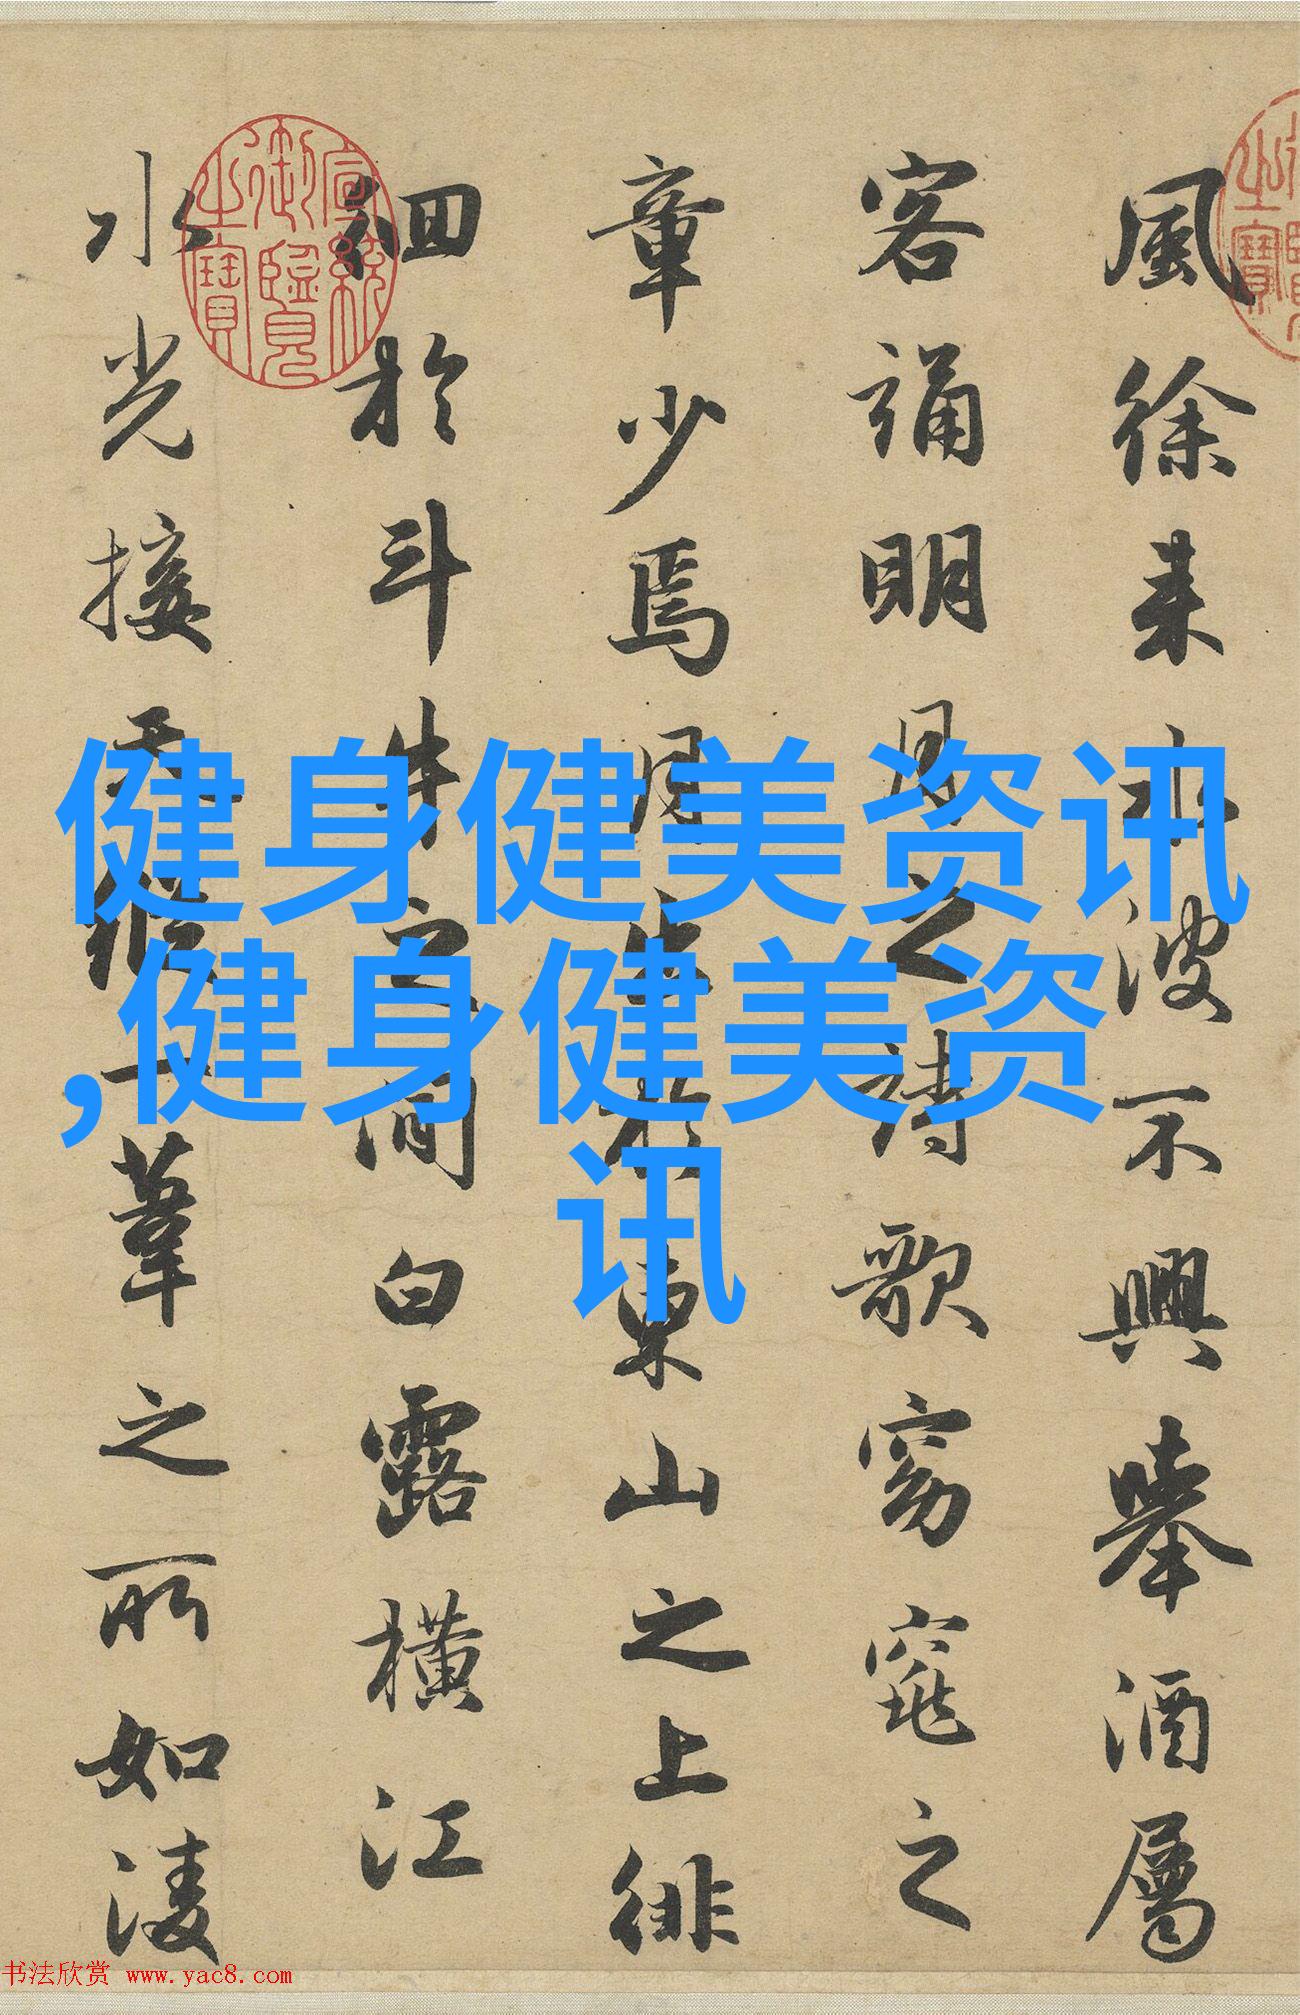 風徐来水波不興舉酒屬
客誦明月之詩歌窈窕之
章少焉月出於東山之上徘
徊於斗牛之間白露橫江
水光接天縱一葦之所如淩
宣統御覽之寶
健身健美资讯
,健身健美资
讯
书法欣赏 www.yac8.com